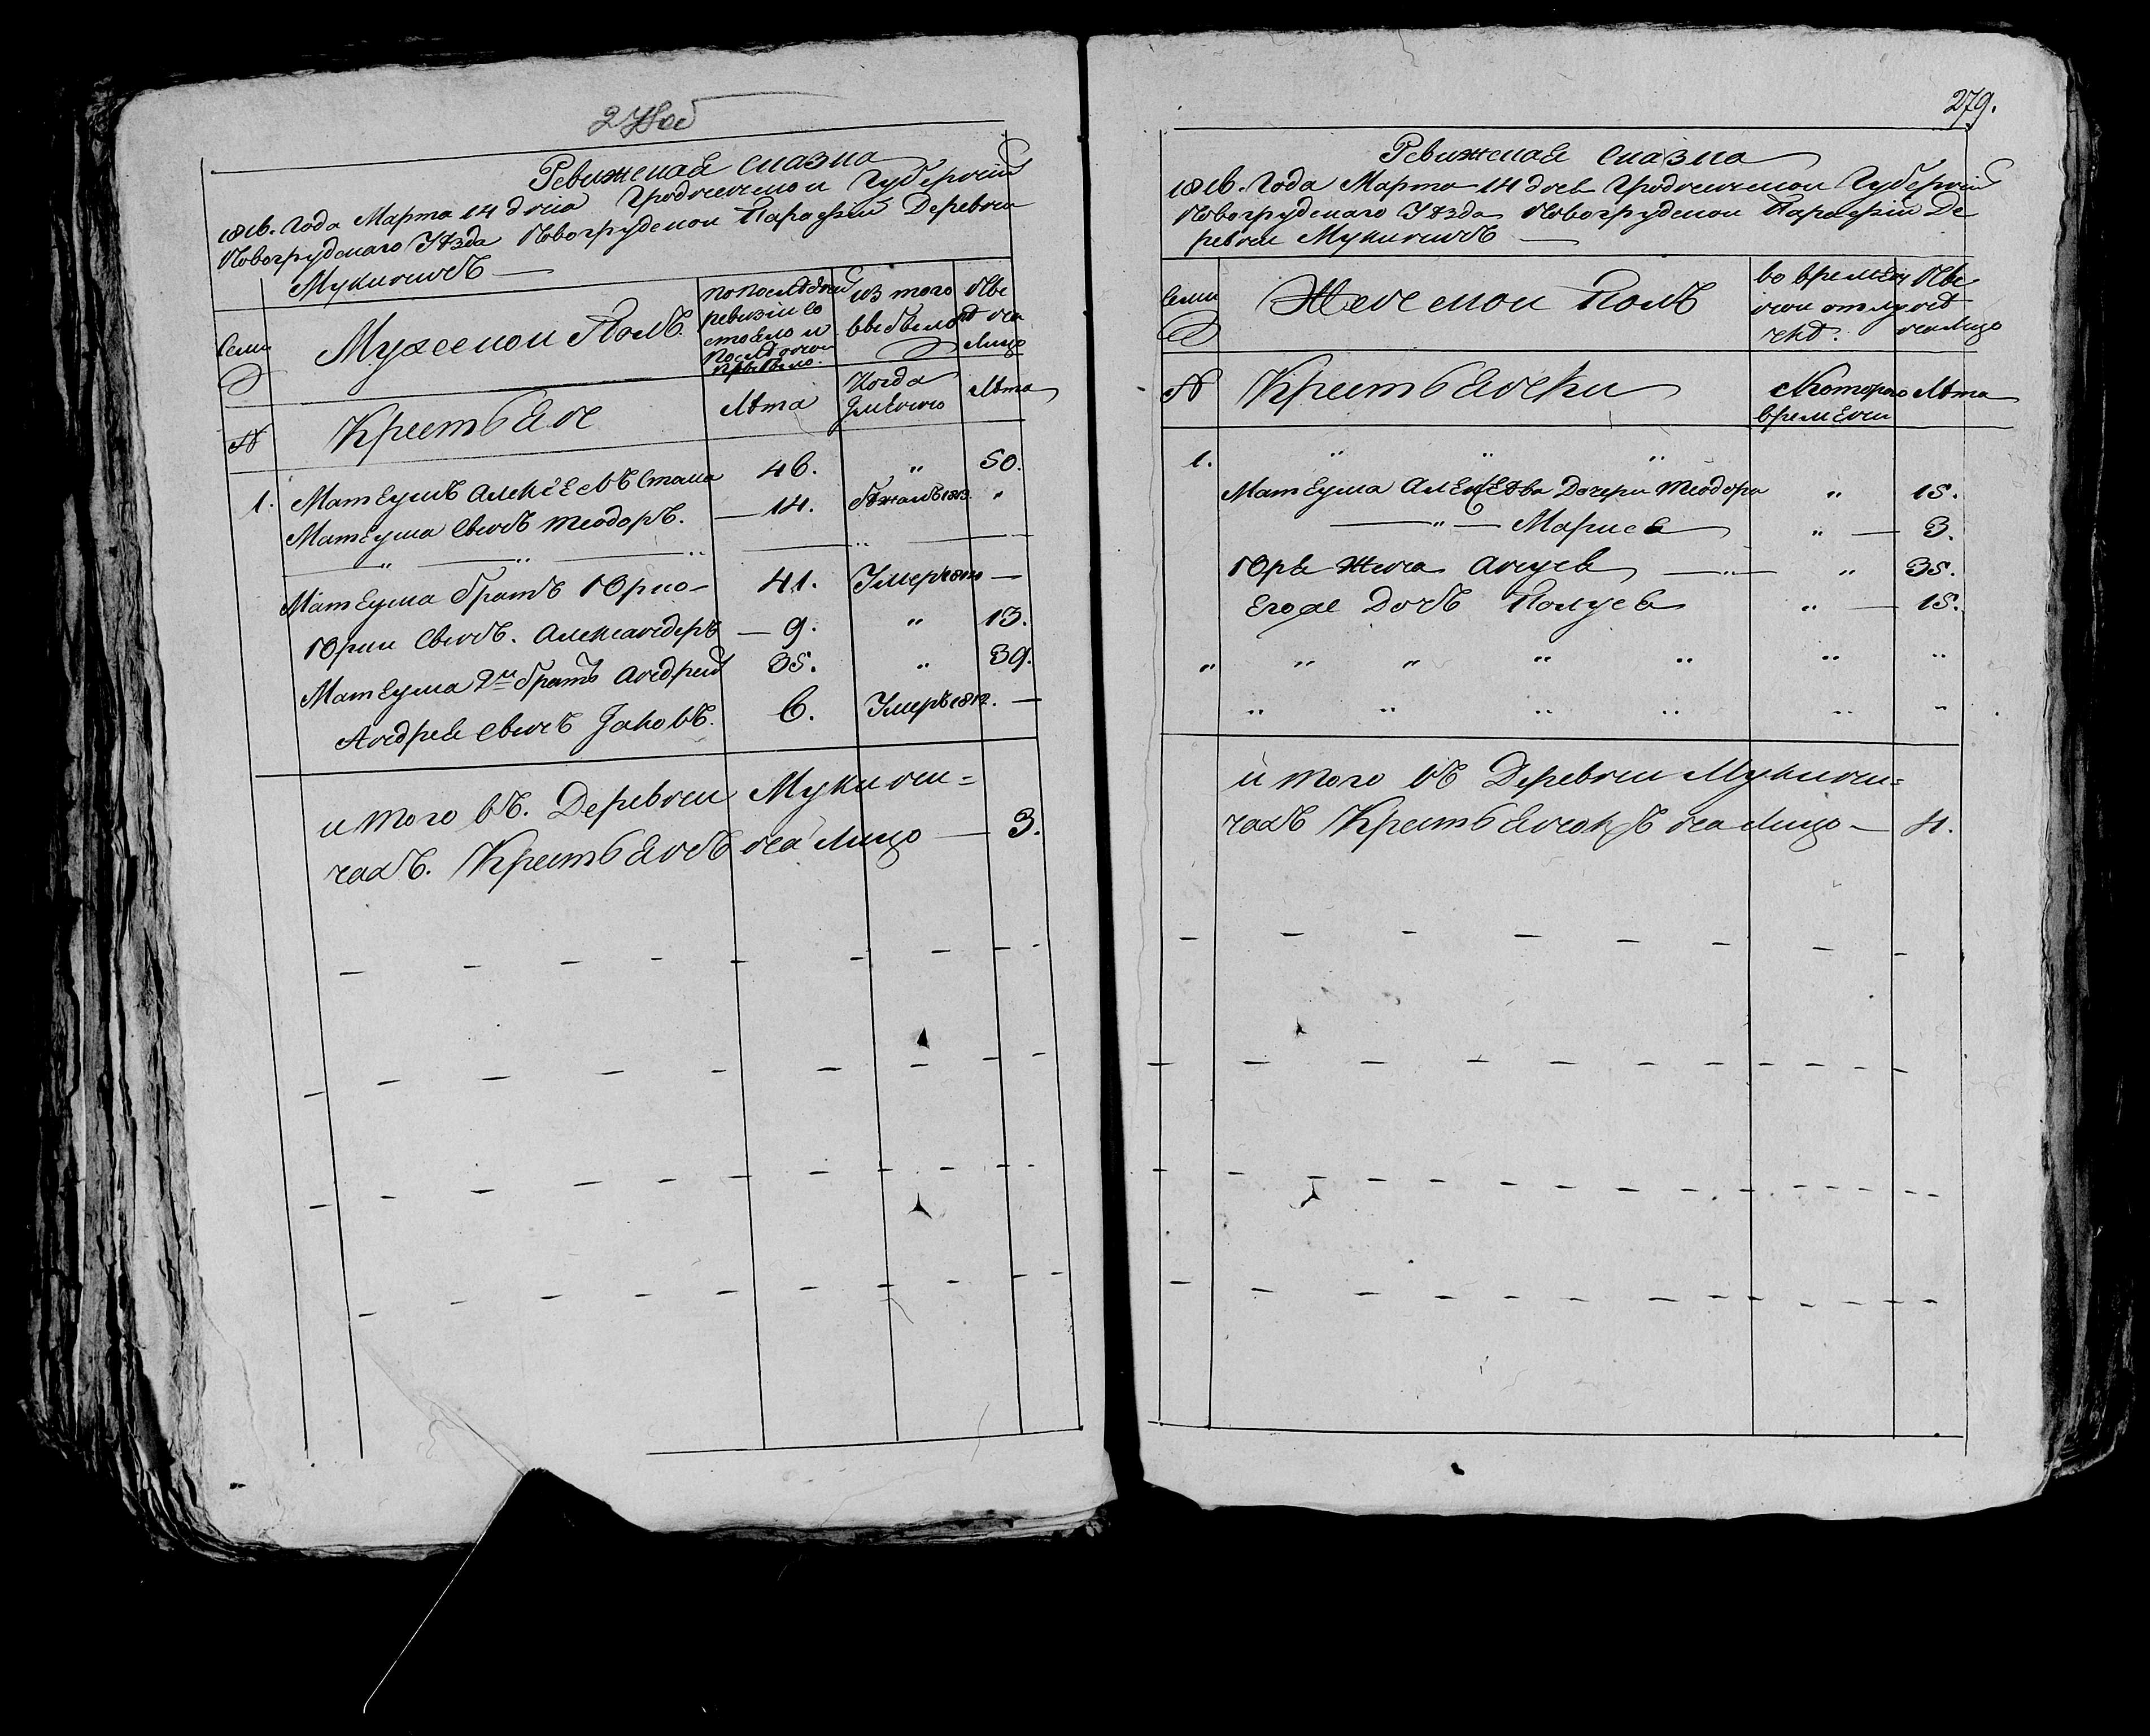 278 об
Ревижская сказка
1816. Года Марта 14 дня Гродненской Губерніи
Новогрудскаго Уѣзда Новогрудской Парафіи Деревни
Мукиничъ —
Семи
Мужеской Полъ
по послѣдней
ревизіи со
стояло и
послѣ оной
прибыло.
из того
выбыло
Ны
нѣ на
лицо
№
Крестьяне
Лѣта
Когда
имянно
Лѣта
1. Матеушъ Алексѣевъ 46. " 50.
Матеуша Сынъ Теодоръ. — 14. Бѣжалъ 1813. "
" " " "
Матеуша братъ Юрко — 41. Умеръ 1811 —
Юрки Сынъ. Александеръ — 9. " 13.
Матеуша 2й братъ Андрей 35. " 39.
Андрея Сынъ Яковъ. 6. Умеръ 1812. —
и того въ. Деревни Мукини=
чахъ. Крестьянъ на Лицо — 3.
279.
Ревижская Сказка
1816. Года Марта 14 дня Гродненской Губерніи
Новогрудскаго Уѣзда Новогрудской Парафіи Де
ревни Мукиничъ —
Семи
Женской Полъ
во времян
ной отлу
чкѣ.
Ны
нѣ
на лицо
№
Крестьянки
Скотораго
времени
Лѣта
1. " " "
Матеуша Алексѣева Дочери Теодора " 15.
— " — Марися " — 3.
Юря Жена Ануся — " — " 35.
Егоже Дочь Полуся " — 15.
" " " " " " "
" " " " " "
и того въ Деревни Мукини=
чахъ Крестьянокъ на Лицо — 4.